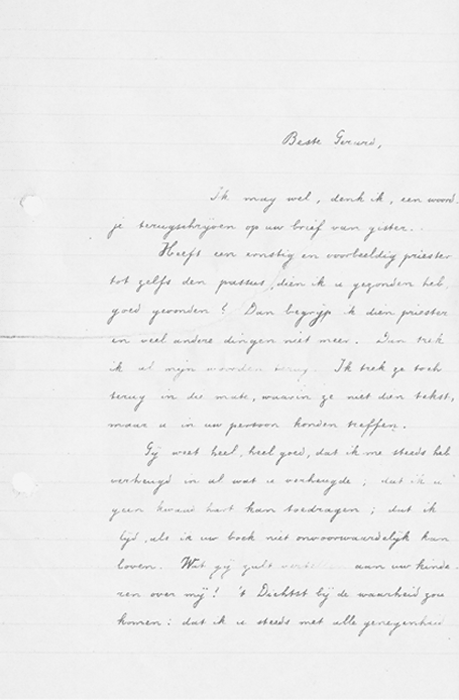 Beste Gerard,
Ik mag wel, denk ik, een woord-
je terugschrijven op uw brief van gister.
Heeft een ernstig en voorbeeldig priester
tot zelfs den passus, dien ik u gezonden heb,
goed gevonden? Dan begrijp ik dien priester
en veel andere dingen niet meer. Dan trek
ik al mijn woorden terug. Ik trek ze toch
terug in die mate, waarin ze niet dien tekst,
maar u in uw persoon konden treffen.
Gij weet heel, heel goed, dat ik me steeds heb
verheugd in al wat u verheugde; dat ik u
geen kwaad hart kan toedragen; dat ik
lijd, als ik uw boek niet onvoorwaardelijk kan
loven. Wat gij zult aan uw kinde-
ren over mij! 't Dichtst bij de waarheid zou
komen: dat ik u steeds met alle genegenheid